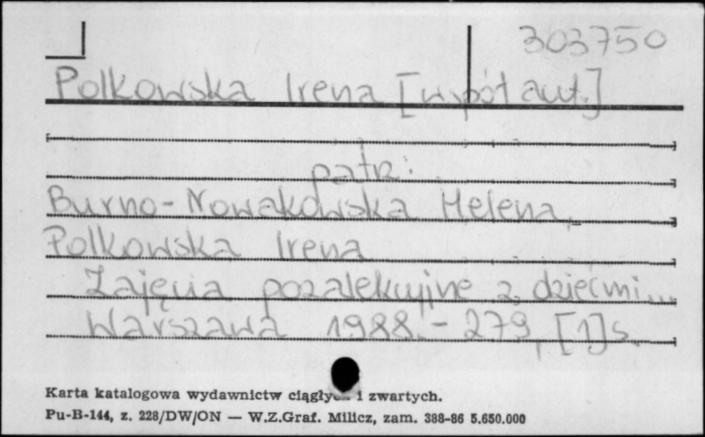 303750
Polkowska Irena [współaut.]
patrz:
Burno-Nowakowska Helena,
Polkowska Irena
Zajęcia pozalekcyjne z dziećmi...
Warszawa 1988. - 279, [1] s.
Karta katalogowa wydawnictw ciągłych i zwartych.
Pu-B-144, z. 228/DW/ON — W.Z.Graf. Milicz, zam. 388-86 5.650.000